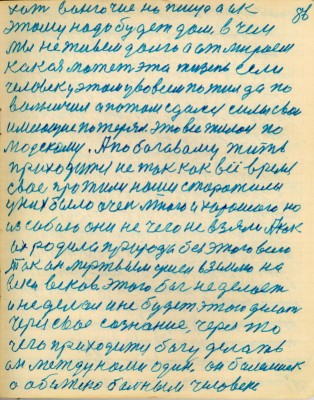 86
хот волочие на пищу а ик
этому надо будет дом, в чем
мы не живем долго а отмираем
какая может эта жизнь если
человек у этом уровем пожил да по
а потом сдался силы свои
имеющие потерял это вие жилося по
людскому. А по богавому жить
приходится не так как всё время
свое прожили наши старожилы
у них было очен много и хорошего но
из собою они не чего не взяли. Как
их родила природа без этого всего
так он мертвыми ушли в землю на
веки веков этого бог не делает
и не делал и не будет этого делать
через свое сознание, через то
чего приходится богу делать
он между нами один, он болеющ
о обижено больным человеке